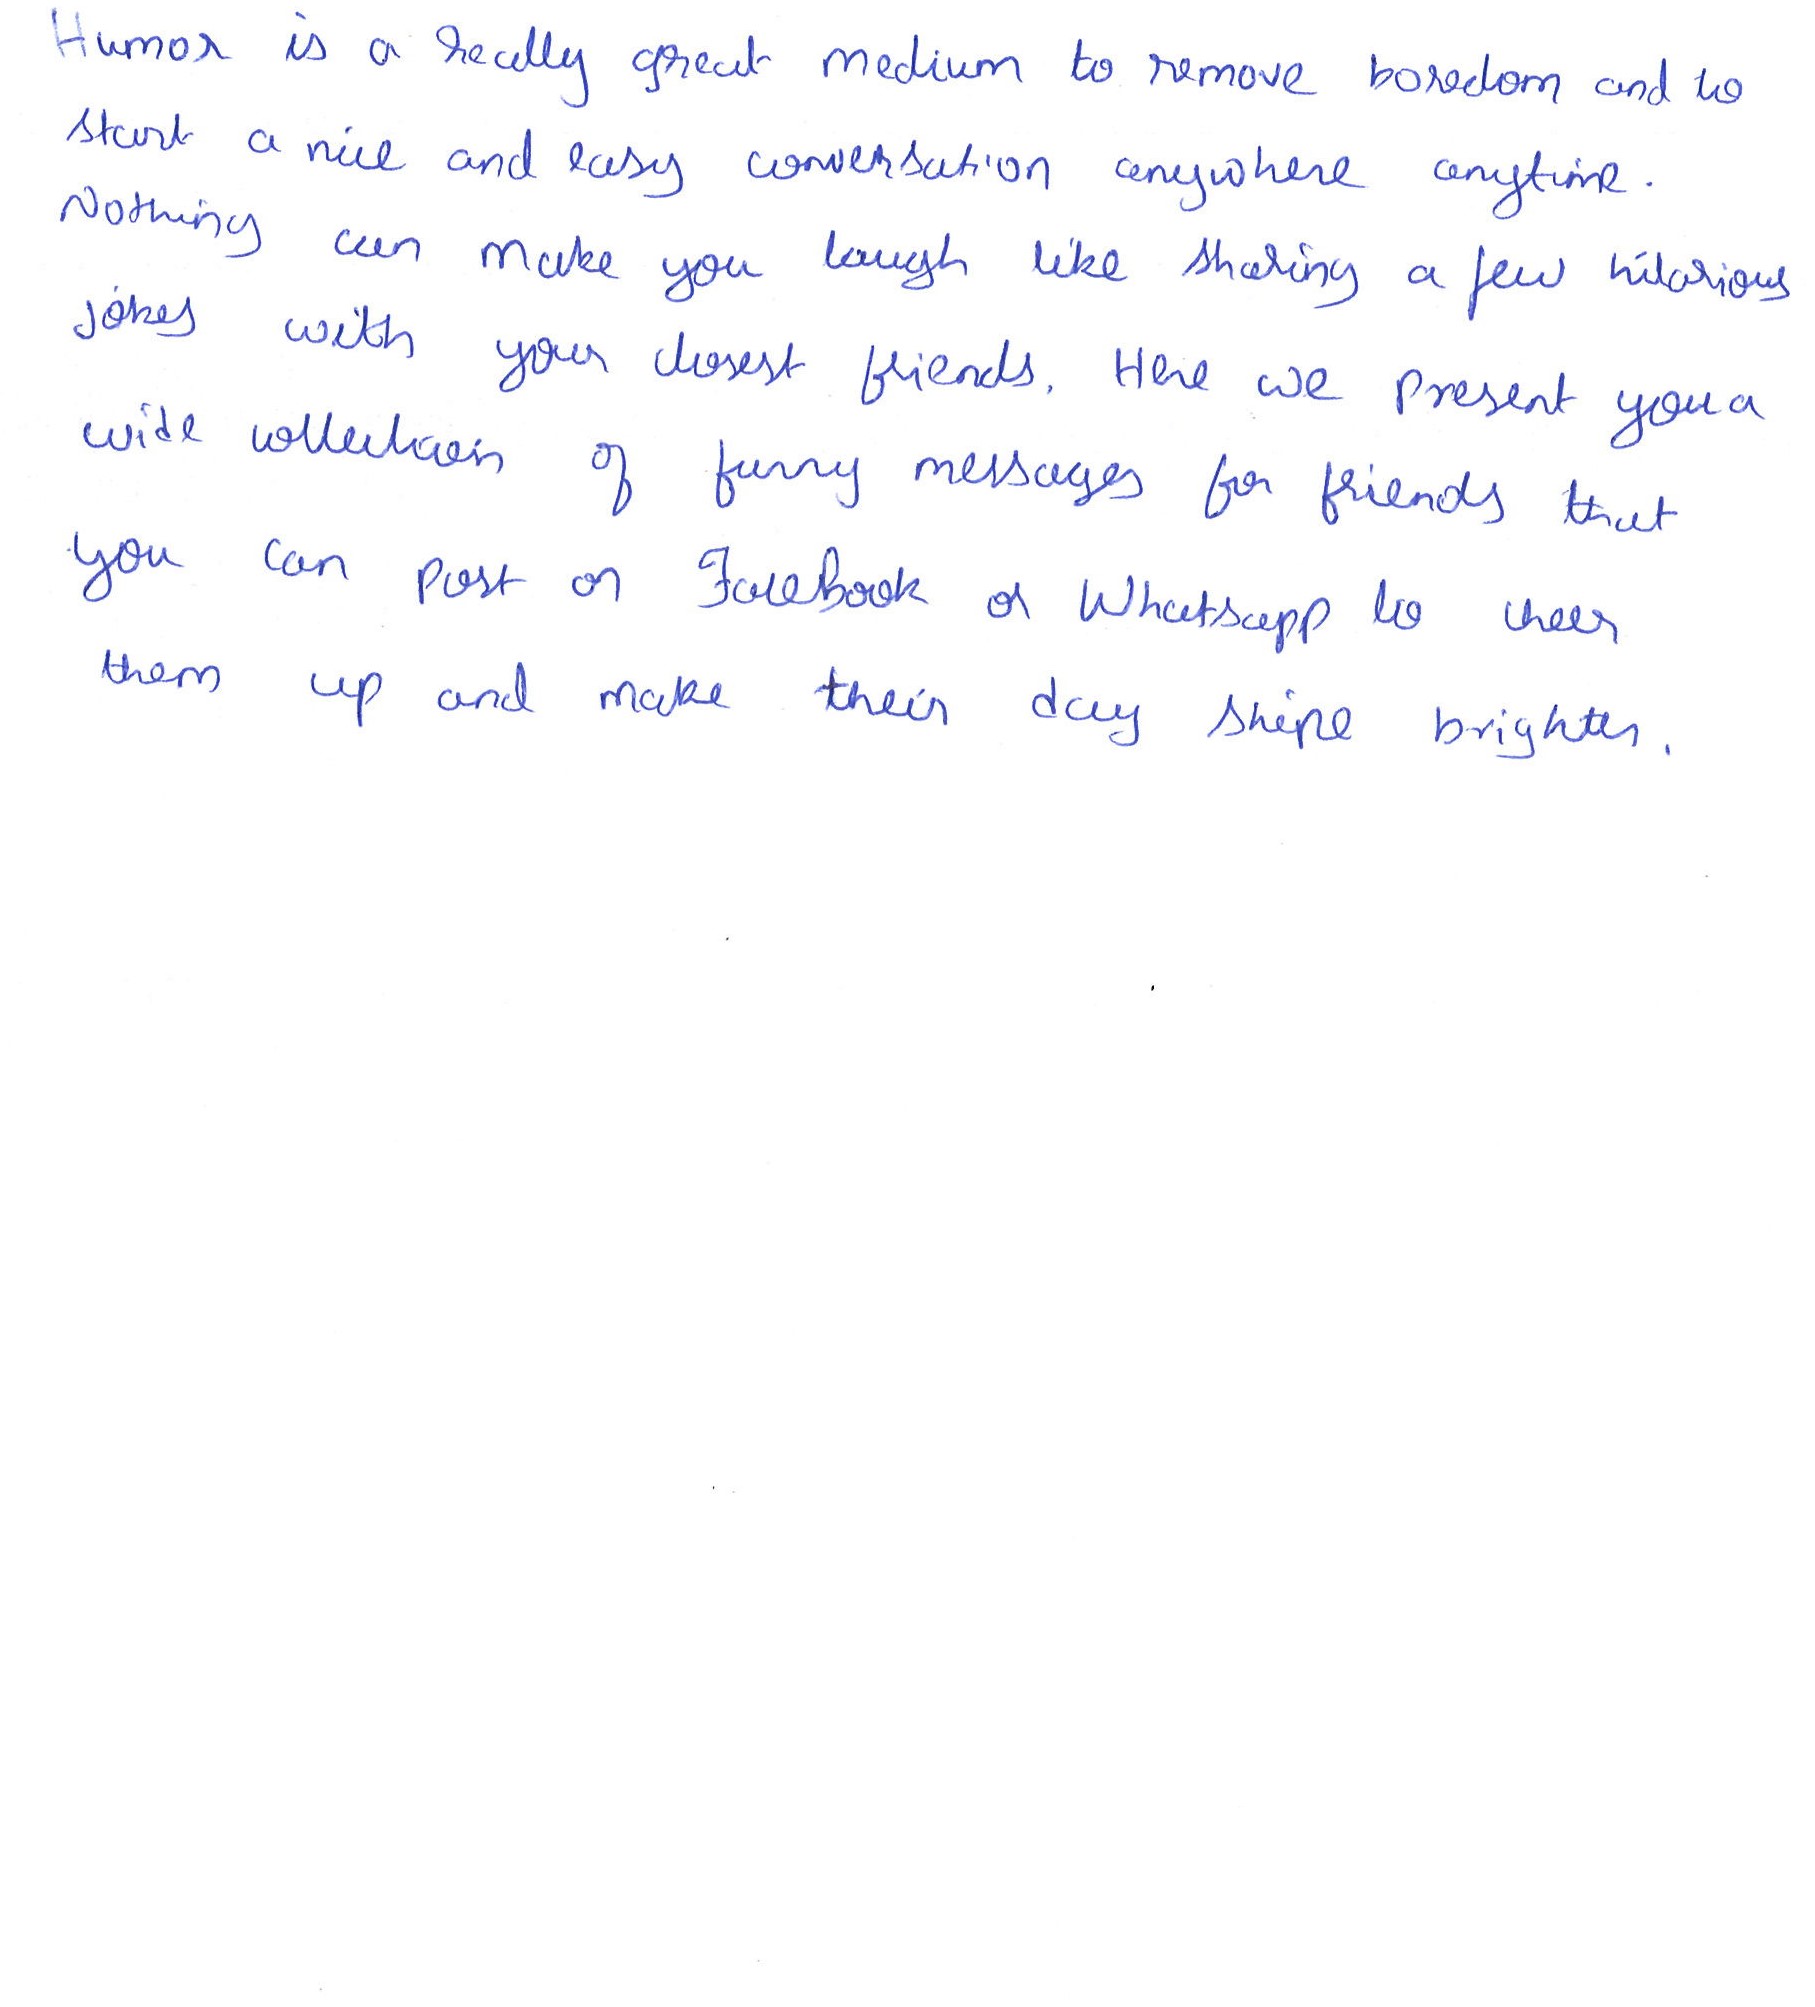 Humor is a really great medium to remove boredom and to
start a nice and easy conversation anywhere anytime.
Nothing can make you laugh like sharing a few hilarious
jokes with your closest friends. Here we present you a
wide collection of funny messages for friends that
you can post on Facebook or Whatsapp to cheer
them up and make their day shine brighter.